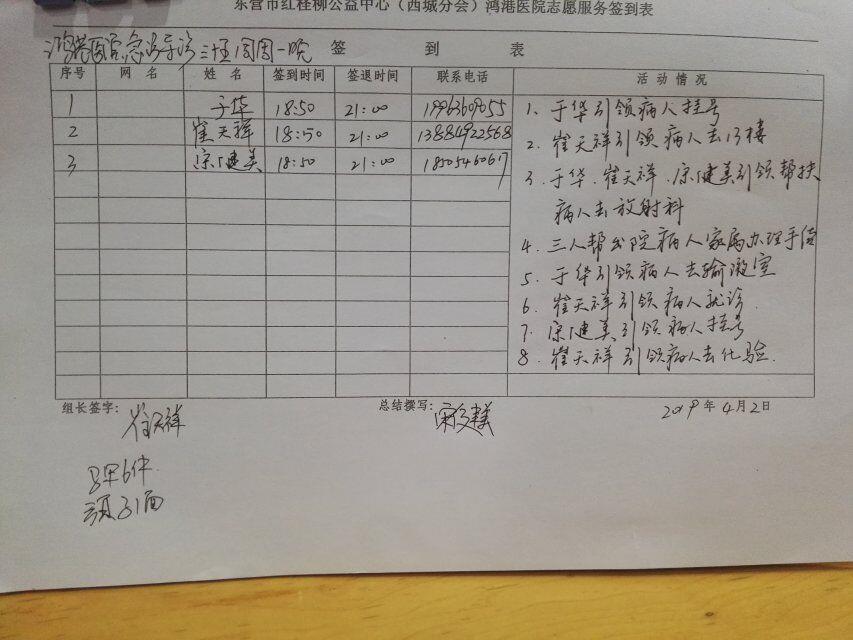 东营市红柽柳公益中心（西城分会）鸿港医院志愿服务签到表
鸿港医院急诊导诊三十五周周一晚 签 到 表
序号 网 名 姓 名 签到时间 签退时间 联系电话 活 动 情 况
1 于华 18:50 21:00
2 崔天祥 18:50 21:00 13884922568
3 宗健美 18:50 21:00
1、于华引领病人挂号
2、崔天祥引领病人去13楼
3、于华、崔天祥、宗健美引领帮扶
病人去放射科
4、三人帮出院病人家属办理手续
5、于华引领病人去输液室
6、崔天祥引领病人就诊
7、宗健美引领病人挂号
8、崔天祥引领病人去化验
组长签字： 崔天祥 总结撰写： 宗健美 2019年4月2日